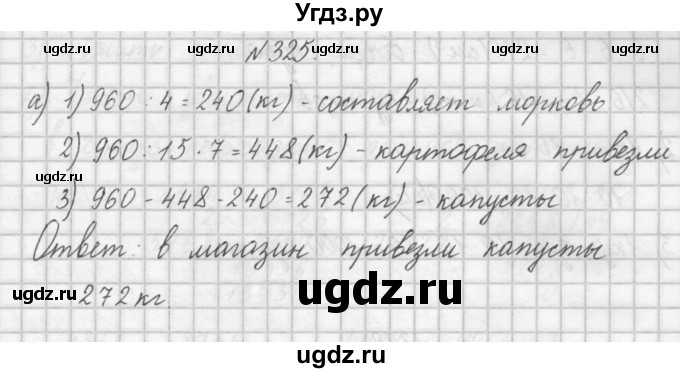 Угдз.ру
ugdz.ru ugdz.ru ugdz.ru
№325.
а) 1) 960 : 4 = 240 (кг) - составляет морковь
ugdz.ru ugdz.ru
2) 960 : 15 · 7 = 448 (кг) - картофеля привезли
ugdz.ru
3) 960 - 448 - 240 = 272 (кг) - капусты
Ответ: в магазин привезли капусты
ugdz.ru ugdz.ru ugdz.ru
272 кг.
ugdz.ru